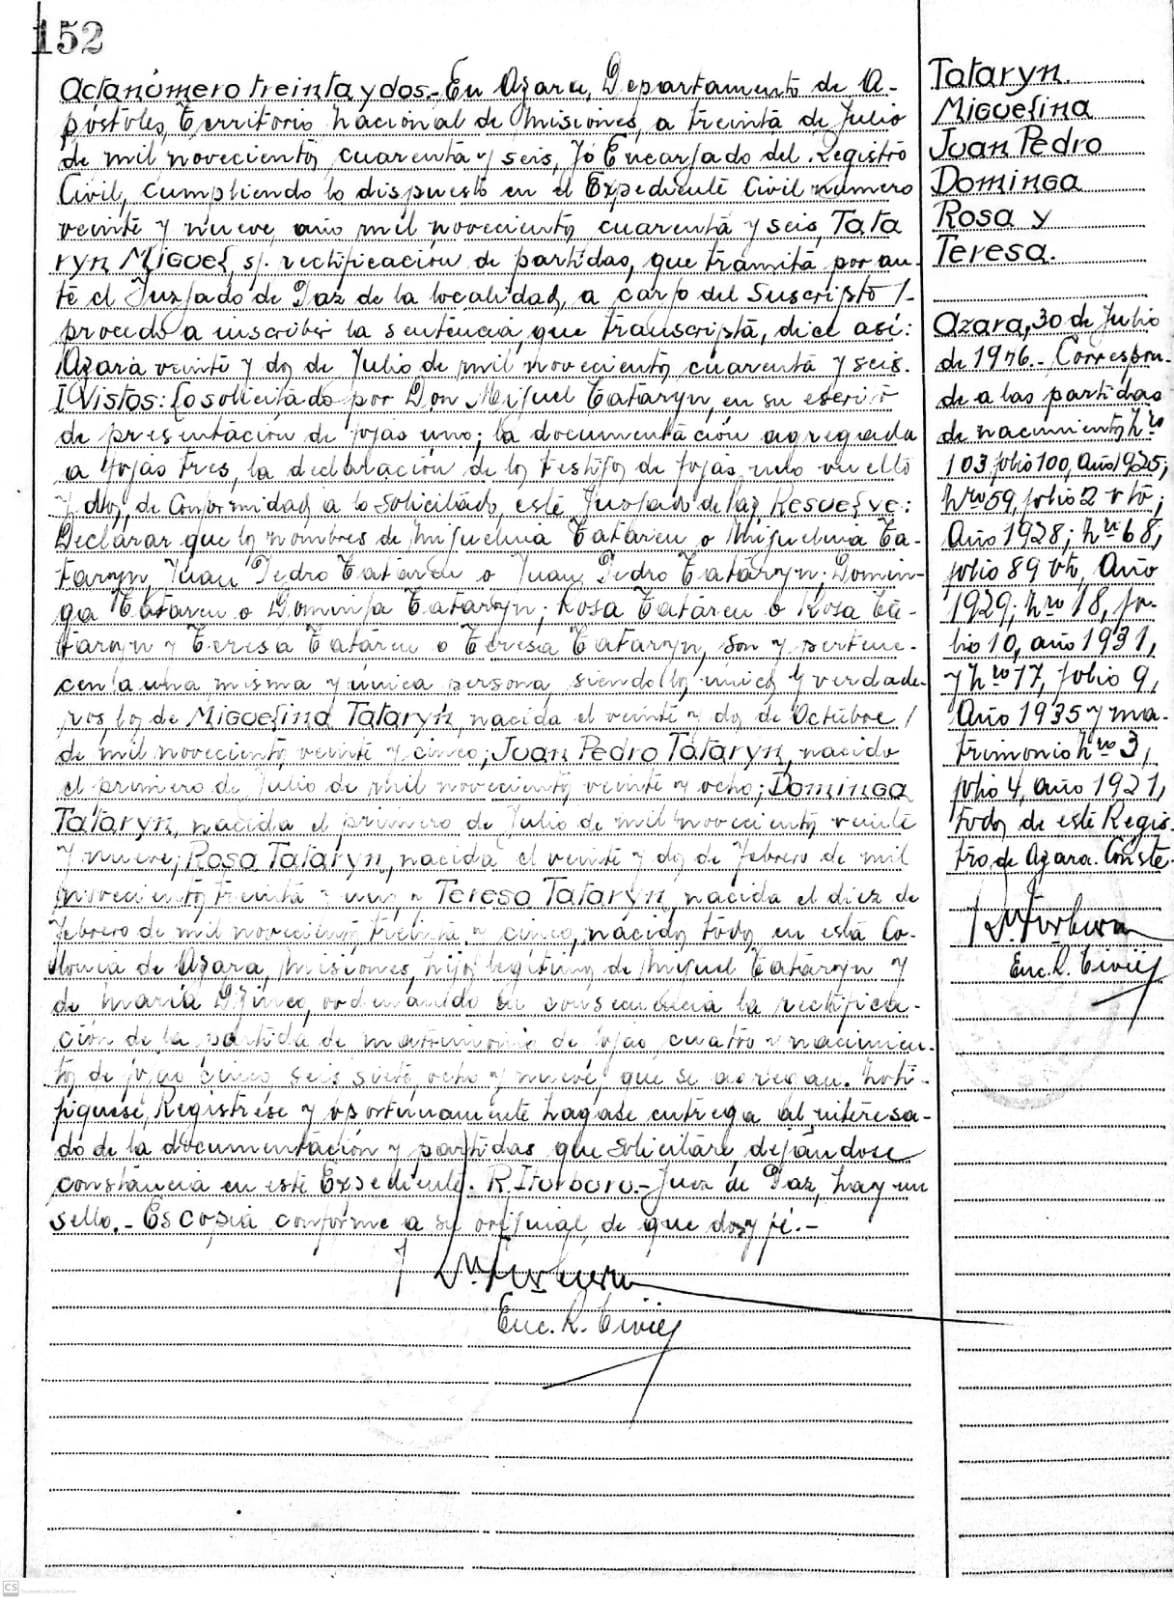 152
Acta número treinta y dos.- En Azara, Departamento de A-
póstoles, Territorio Nacional de Misiones, a treinta de Julio
de mil novecientos cuarenta y seis, Yo Encargado del Registro
Civil, cumpliendo lo dispuesto en el Expediente Civil número
veinte y nueve, año mil novecientos cuarenta y seis, Tata
ryn Miguel, s/. rectificación de partidas, que tramita por an-
te el Juzgado de Paz de la localidad, a cargo del Suscripto /-
procedo a inscribir la sentencia, que transcripta, dice así:
Azara veinte y dos de Julio de mil novecientos cuarenta y seis.
Y Vistos: Lo solicitado por Don Miguel Tataryn, en su escrito
de presentación de fojas uno; la documentación agregada
a fojas tres, la declaración de los testigos de fojas uno vuelto
y dos, de conformidad a lo solicitado, este Juzgado de Paz Resuelve:
Declarar que los nombres de Miguelina Tatareu o Miguelina Ta-
taryn, Juan Pedro Tatareu o Juan Pedro Tataryn; Domin-
ga Tatareu o Dominga Tataryn; Rosa Tatareu o Rosa Ta-
taryn y Teresa Tatareu o Teresa Tataryn, son y pertene-
cen a una misma y única persona, siendo los únicos y verdade-
ros, los de Miguelina Tataryn, nacida el veinte y dos de Octubre /
de mil novecientos veinte y cinco; Juan Pedro Tataryn, nacido
el primero de Julio de mil novecientos veinte y ocho; Dominga
Tataryn, nacida el primero de Julio de mil novecientos veinte
y nueve; Rosa Tataryn, nacida el veinte y dos de Febrero de mil
novecientos treinta y uno y Teresa Tataryn, nacida el diez de
Febrero de mil novecientos treinta y cinco, nacidos todos en esta Co-
lonia de Azara, Misiones, hijos legítimos de Miguel Tataryn y
de María, ordenando en consecuencia la rectifica-
ción de la partida de matrimonio de fojas cuatro y nacimien-
tos de fojas cinco, seis, siete, ocho y nueve, que se agregan. Noti-
fíquese, Regístrese y oportunamente hágase entrega al interesa-
do de la documentación y partidas que solicitare dejándose
constancia en este Expediente. R. Iturburu.- Juez de Paz, hay un
sello.- Es copia conforme a su original, de que doy fé.-
Enc. R. Civil
Tataryn.
Miguelina
Juan Pedro
Dominga
Rosa y
Teresa.
Azara, 30 de Julio
de 1946.- Correspon-
de a las partidas
de nacimientos Nro
103 folio 100, Año 1925;
Nro 59, folio 2 vto;
Año 1928; Nro 68,
folio 89 vto, Año
1929; Nro 18, fo-
lio 10, año 1931,
y Nro 17, folio 9,
Año 1935 y ma-
trimonio Nro 3,
folio 4, año 1921,
todos de este Regis
tro de Azara. Conste.
Enc. R. Civil
CS